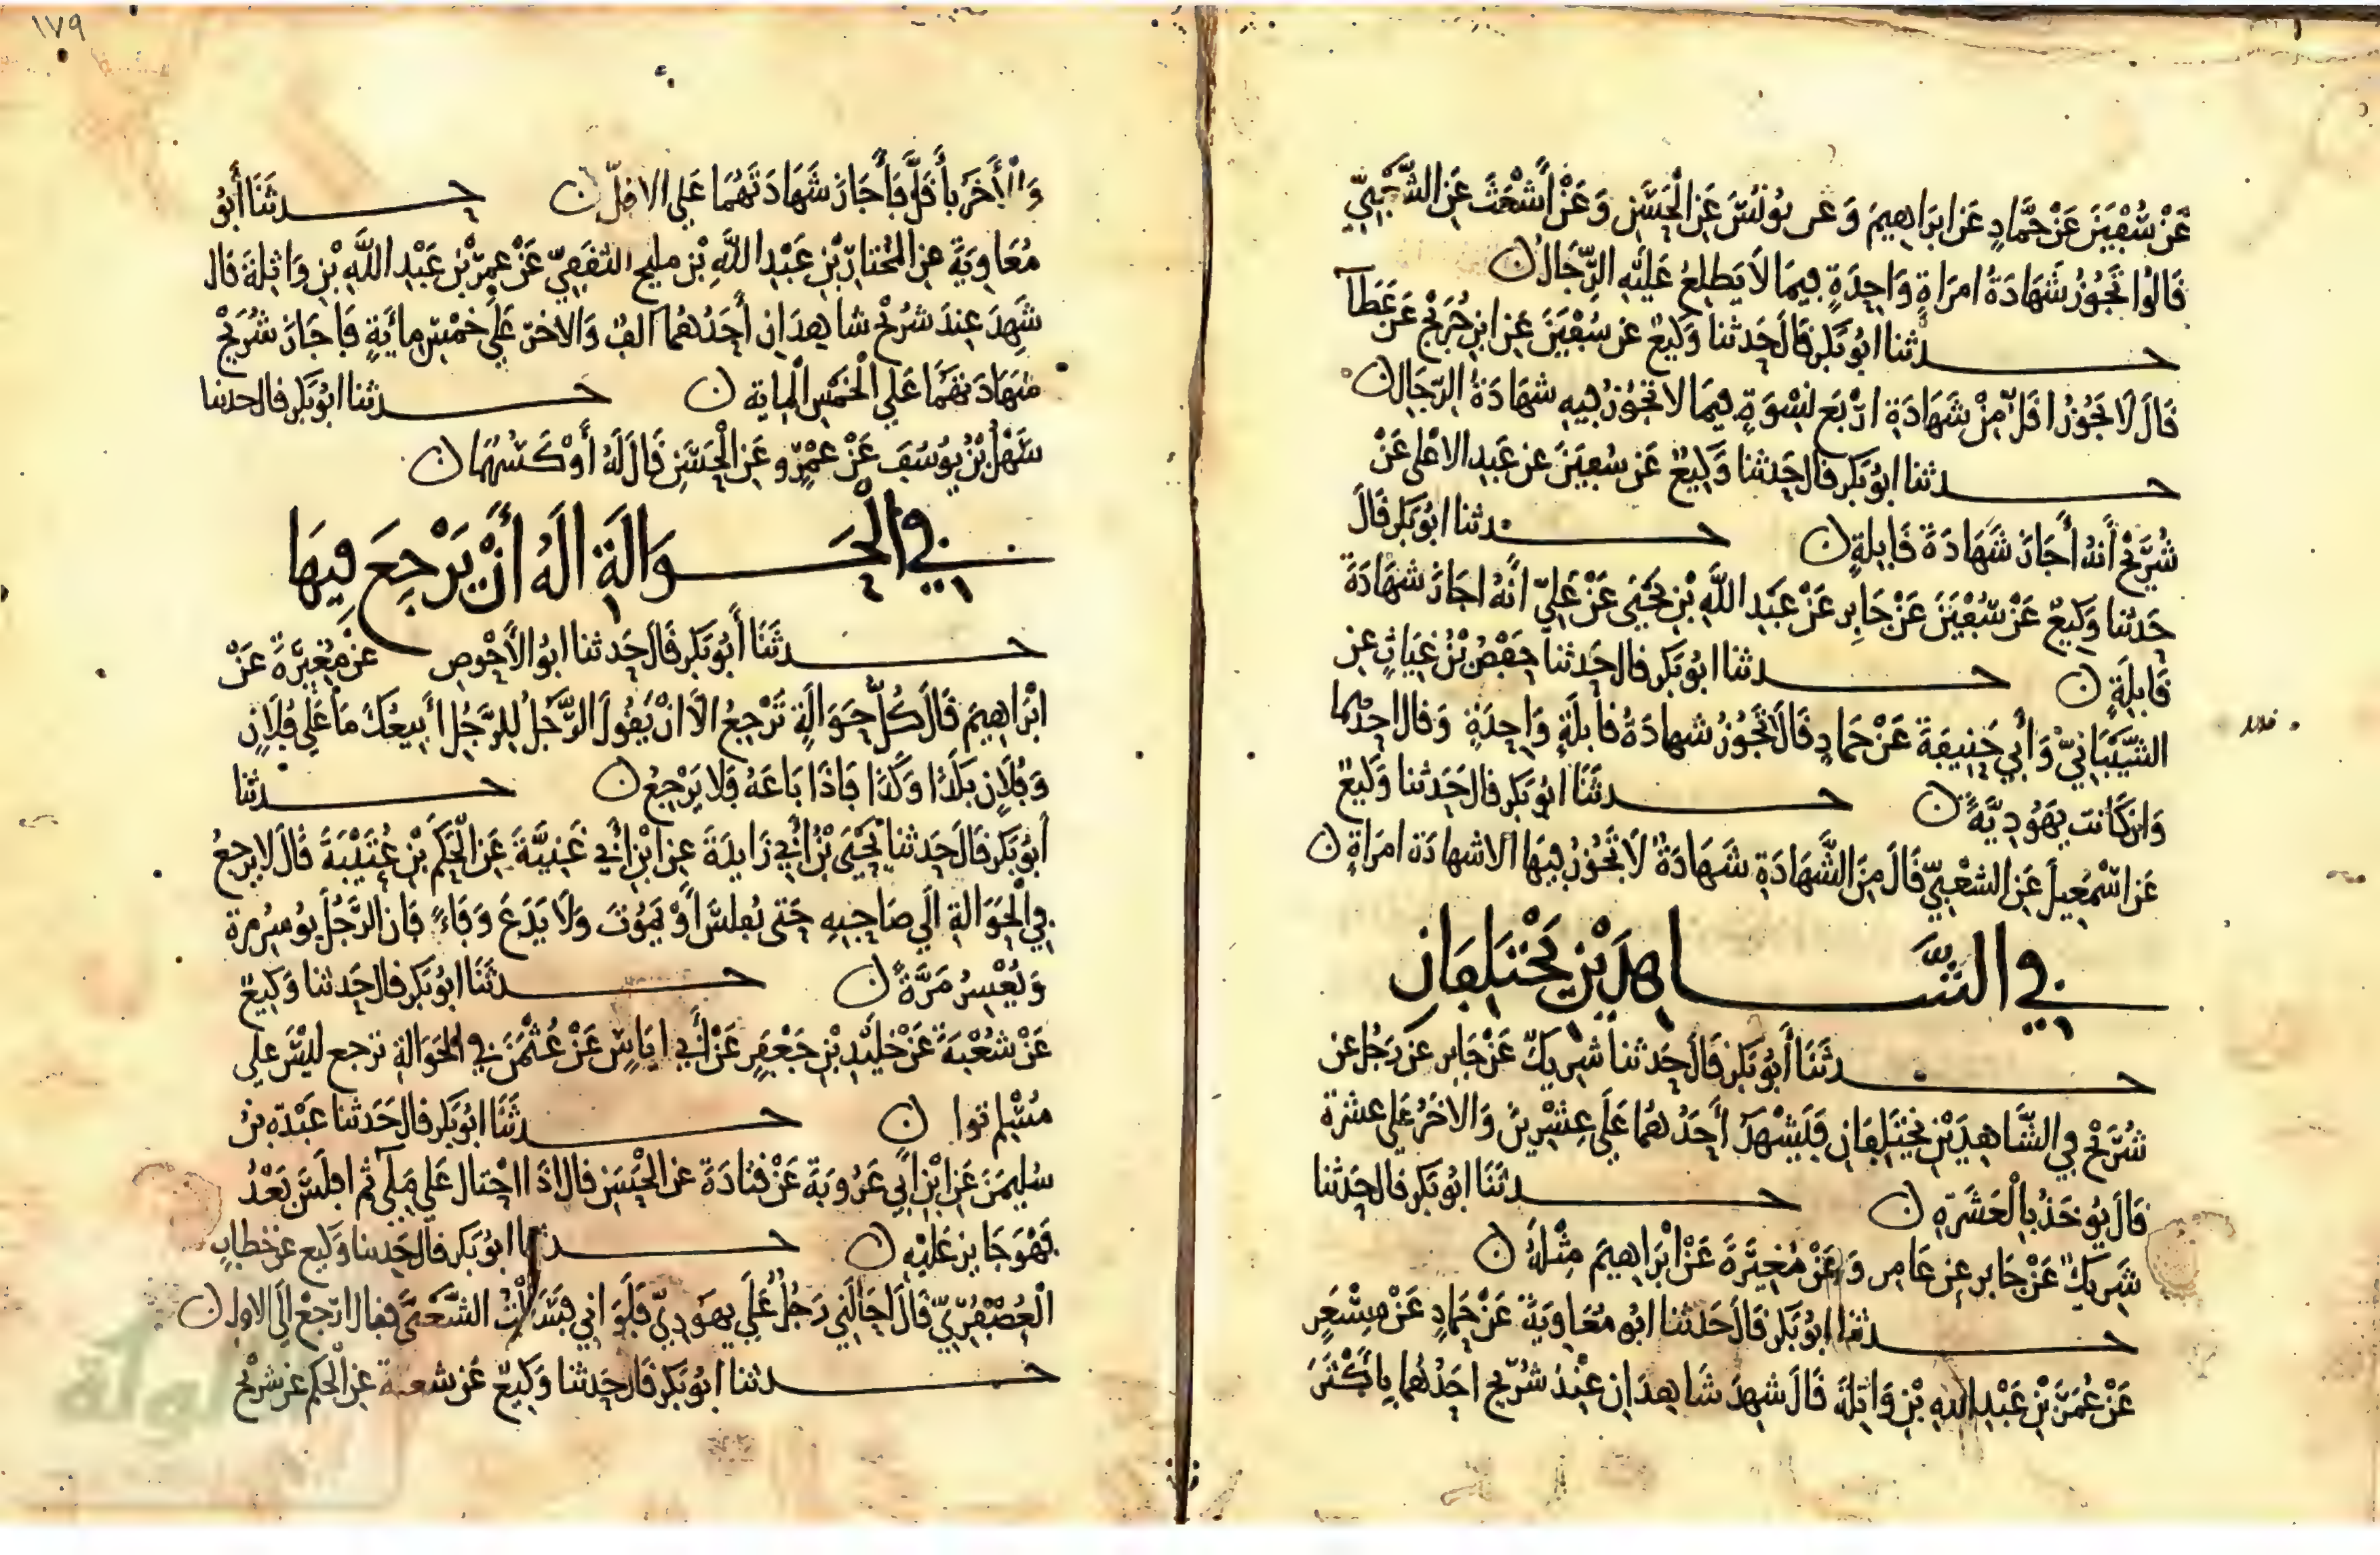 عن سفين عن حماد عن ابراهيم وعن يونس عن الحسن وعن أشعث عن الشعبي
قالوا تجوز شهادة امراة واحدة فيما لا يطلع عليه الرجال ن
حدثنا ابو بكر قال حدثنا وكيع عن سفين عن ابن جريج عن عطآ
قال لا تجوز اقل من شهادة اربع نسوة فيما لا تجوز فيه شهادة الرجال ن
حدثنا ابو بكر قال حدثنا وكيع عن سفين عن عبد الاعلى عن
شريح أنه أجاز شهادة قابلة ن حدثنا ابو بكر قال
حدثنا وكيع عن سفين عن جابر عن عبد الله بن يحيى عن علي انه اجاز شهادة
قابلة ن حدثنا ابو بكر قال حدثنا حفص بن غياث عن
الشيباني وأبي حنيفة عن حماد قال تجوز شهادة قابلة واحدة وقال احدهما
وان كانت يهودية ن حدثنا ابو بكر قال حدثنا وكيع
عن اسمعيل عن الشعبي قال من الشهادة شهادة لا تجوز فيها الا شهادة امراة ن
في الشاهدين يختلفان
حدثنا أبو بكر قال حدثنا شريك عن جابر عن رجل عن
شريح في الشاهدين يختلفان فيشهد أحدهما على عشرين والاخر على عشرة
قال يوخذ بالعشرة ن حدثنا ابو بكر قال حدثنا
شريك عن جابر عن عامر وعن مغيرة عن ابراهيم مثله ن
حدثنا ابو بكر قال حدثنا ابو معاوية عن حماد عن مسعر
عن عمر بن عبد الله بن واثلة قال شهد شاهدان عند شريح احدهما باكثر
١٧٩
والأخر بأقل فأجاز شهادتهما على الاقل ن حدثنا أبو
معاوية عن المختار بن عبد الله بن مليح الثقفي عن عمر بن عبد الله بن واثلة قال
شهد عند شريح شاهدان أحدهما الف والاخر على خمس ماية فاجاز شريح
شهادتهما على الخمس الماية ن حدثنا ابو بكر قال حدثنا
سهل بن يوسف عن عمرو عن الحسن قال له أوكسهما ن
في الحوالة اله أن يرجع فيها
حدثنا أبو بكر قال حدثنا ابو الأحوص عن مغيرة عن
ابراهيم قال كل حوالة ترجع الا ان يقول الرجل للرجل أبيعك ما على فلان
وفلان بكذا وكذا فاذا باعه فلا يرجع ن حدثنا
أبو بكر قال حدثنا يحيى بن أبي زايدة عن ابن أبي غنية عن الحكم بن عتيبة قال لا يرجع
في الحوالة الى صاحبه حتى يفلس او يموت ولا يدع وفاء فان الرجل يوسر مرة
ويعسر مرة ن حدثنا ابو بكر قال حدثنا وكيع
عن شعبة عن خليد بن جعفر عن أبي اياس عن عثمن في الحوالة ترجع ليس على
مسلم توا ن حدثنا ابو بكر قال حدثنا عبدة بن
سليمن عن ابن ابي عروبة عن قتادة عن الحسن قال اذا احتال على ملي ثم افلس بعد
فهو جايز عليه ن حدثنا ابو بكر قال حدثنا وكيع عن خطاب
العصفري قال احالني رجل على يهودي فلواني فسالت الشعبي فقال ارجع الى الاول ن
حدثنا ابو بكر قال حدثنا وكيع عن شعبة عن الحكم عن شريح